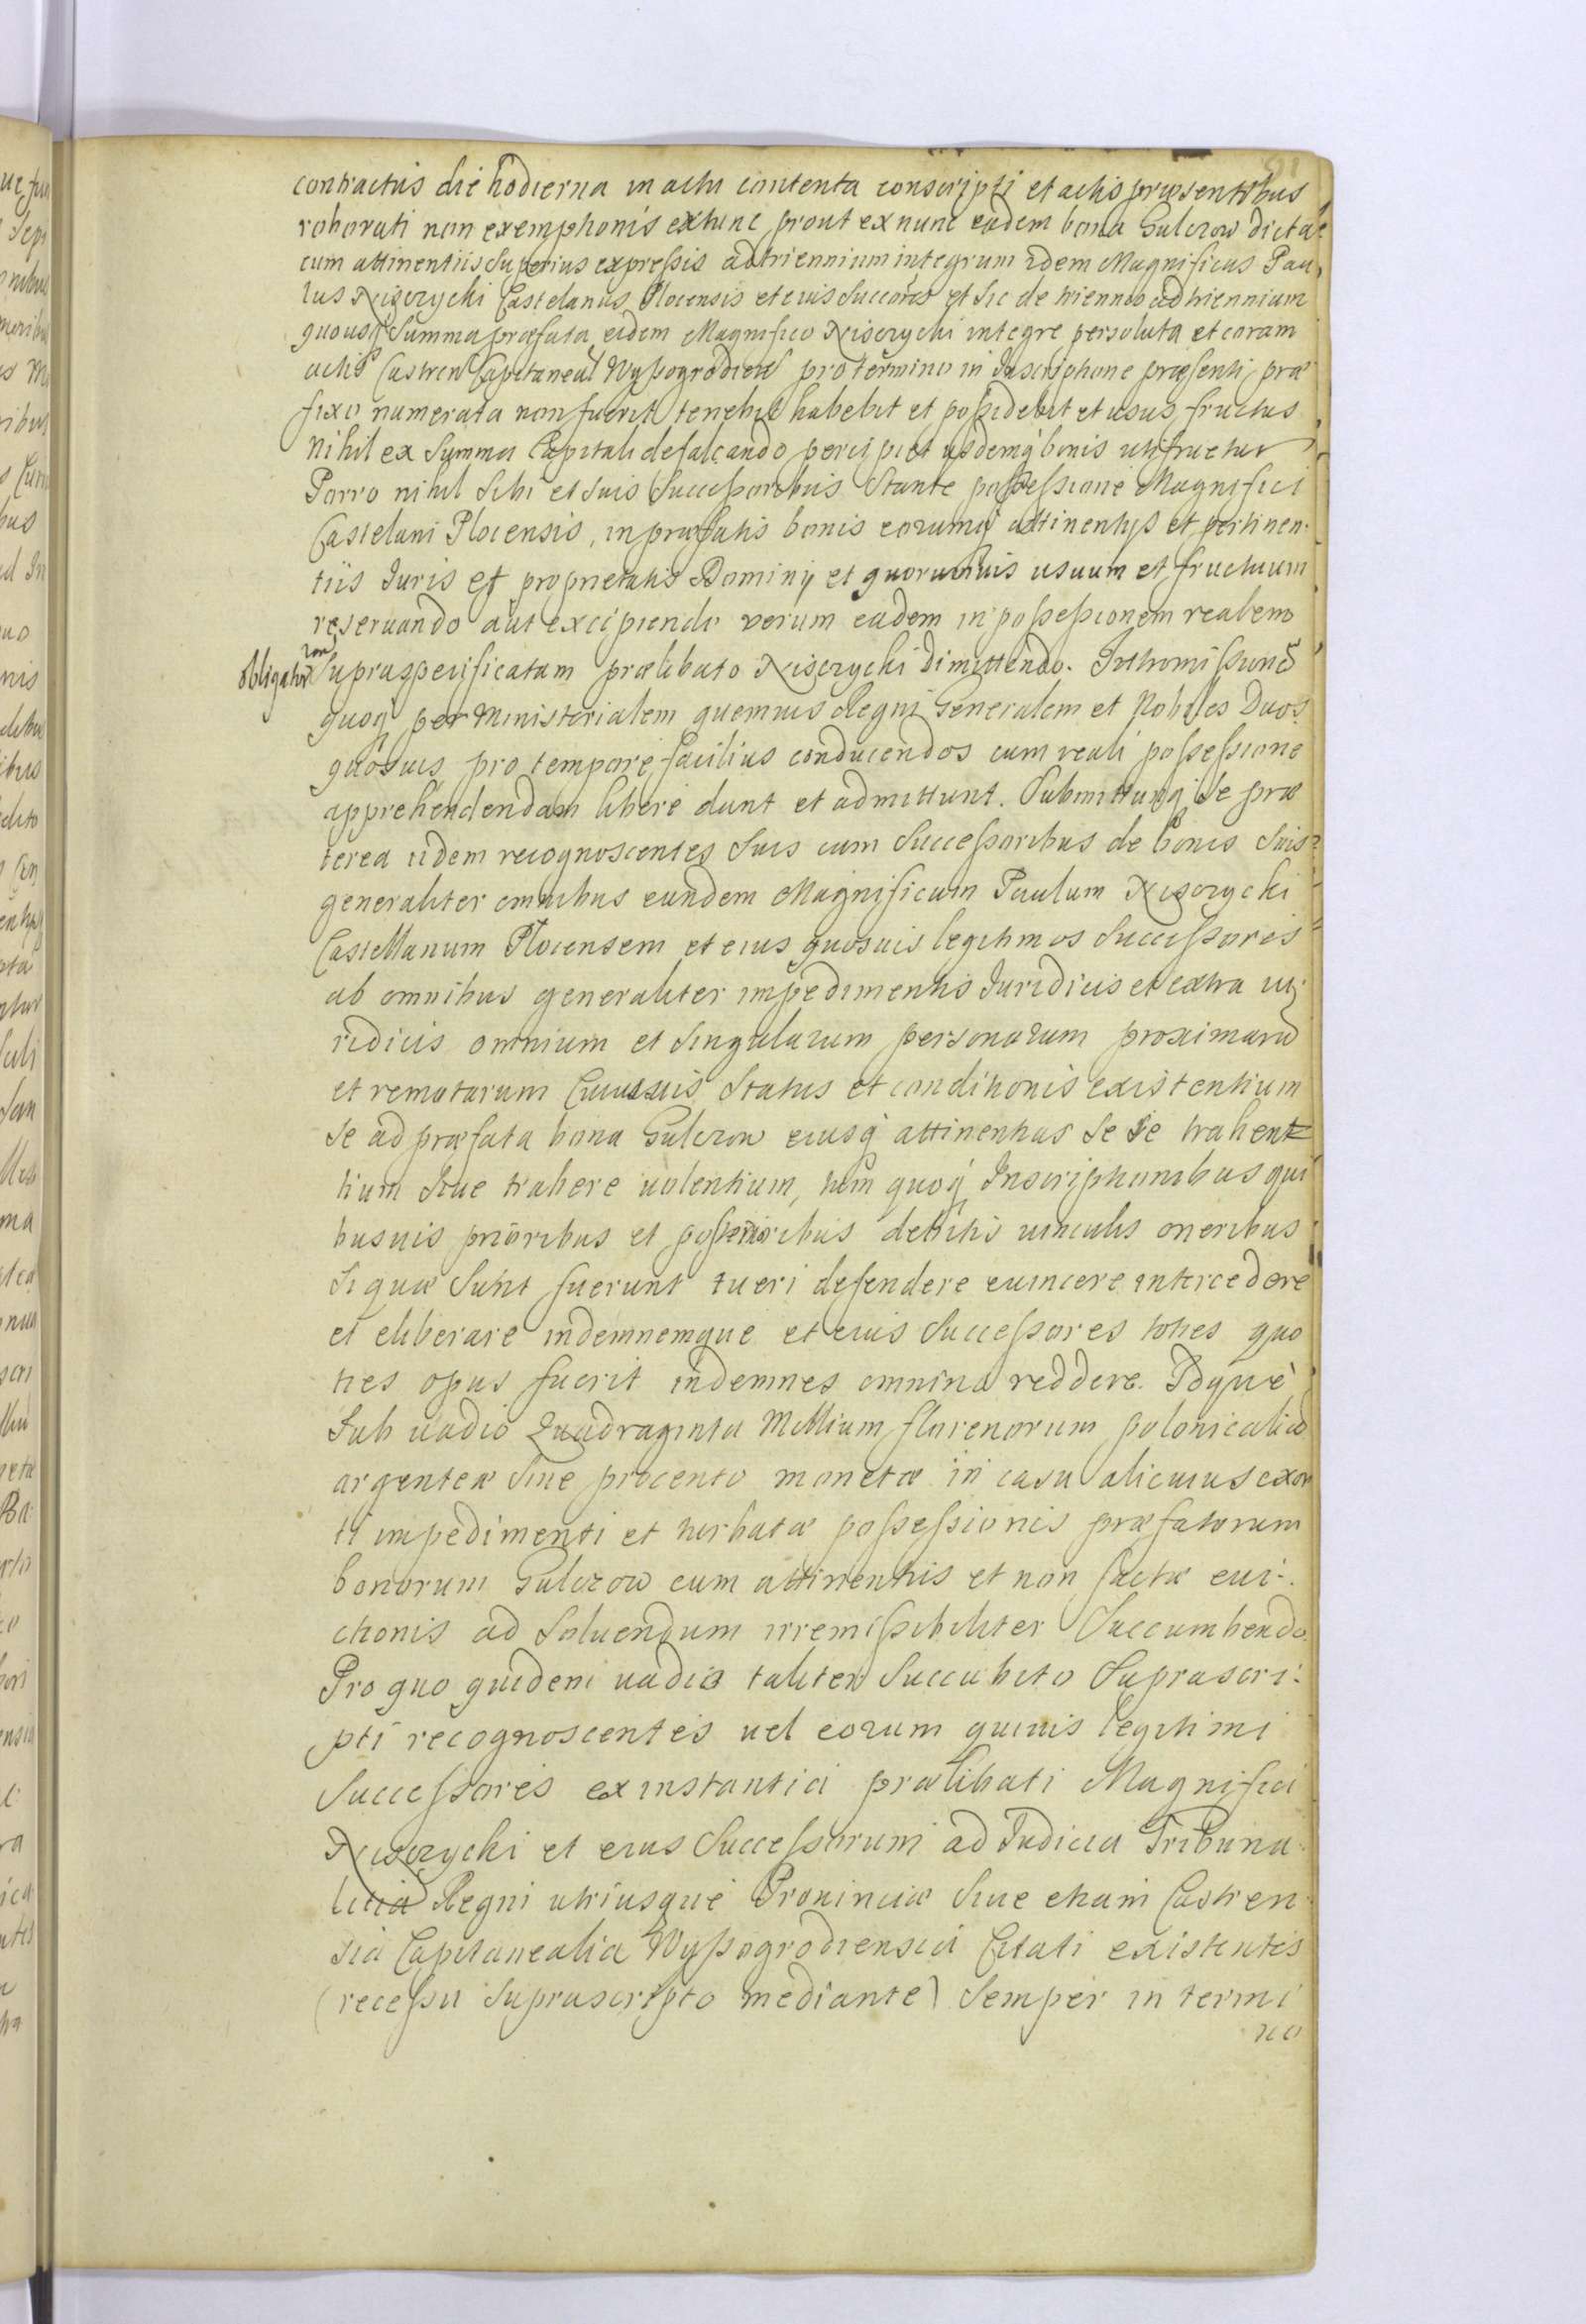 91
contractus die hodierna in actu contenta conscripti et actis præsentibus
roborati non exemptionis extunc prout ex nunc eadem bona Gulczow dicta
cum attinentiis Superius expressis ad triennium integrum idem Magnificus Pau,
lus Niszczycki Castelanus Plocensis et eius Succores et sic de triennio ad triennium
quousq Summa præfata eidem Magnifico Niszczycki integre persoluta et coram
actis Castren Capitaneal Wyssogrodien pro termino in Inscriptione præsenti præ
fixo numerata non fuerit tenebit habebit et possidebit et usus fructus
nihil ex Summa Capitali defalcando percipiet ijsdemq bonis utifruetur
Porro nihil Sibi et suis Successoribus Stante possessione Magnifici
Castelani Plocensis, in præfatis bonis eorumq attinentijs et pertinen
tiis Iuris et proprietatis Dominij et quorumvis usuum et fructuum
reservando aut excipiendo verum eadem in possessionem realem
obligator Supraspecificatam prælibato Niszczycki dimittendo. Intromissione
quoq per Ministerialem quemvis Regni Generalem et Nobiles Duos
quosvis pro tempore facilius conducendos cum reali possessione
apprehendendam libere dant et admittunt. Submittuntq Se præ
terea iidem recognoscentes Suis cum Successoribus de bonis Suis
generaliter omnibus eundem Magnificum Paulum Niszczycki
Castellanum Plocensem et eius quosuis legitimos Successores
ab omnibus generaliter impedimentis Iuridicis et extra iu
ridicis omnium et Singularum personarum proximarū
et remotarum Cuiusuis Status et conditionis existentium
se ad præfata bona Gulczow eiusq attinentias Se Se trahent
tium Siue trahere uolentium, tum quoq Inscriptionibus qui
busuis prioribus et posterioribus debitis uinculis oneribus
Si quæ Sunt fuerunt tueri defendere euincere intercedere
et eliberare indemnemque et eius Successores toties quo
ties opus fuerit indemnes omnino reddere. Idque
Sub uadio Quadraginta Millium florenorum polonicaliū
argenteæ Siue procento monetæ in casu alicuius exor
ti impedimenti et turbatæ possessionis præfatorum
bonorum Gulczow cum attinentiis et non factæ eui-
ctionis ad Soluendum irremissibiliter Succumbendo
Pro quo quidem uadio taliter Succubito Suprascri:
pti recognoscentes uel eorum quiuis legitimi
Successores ex instantia prælibati Magnifici
Niszczycki et eius Successorum ad Iudicia Tribuna
litia Regni utriusque Prouinciæ Siue etiam Castren
sia Capitanealia Wyssogrodiensia Citati existentes
(recessu Suprascripto mediante) Semper in termi
no